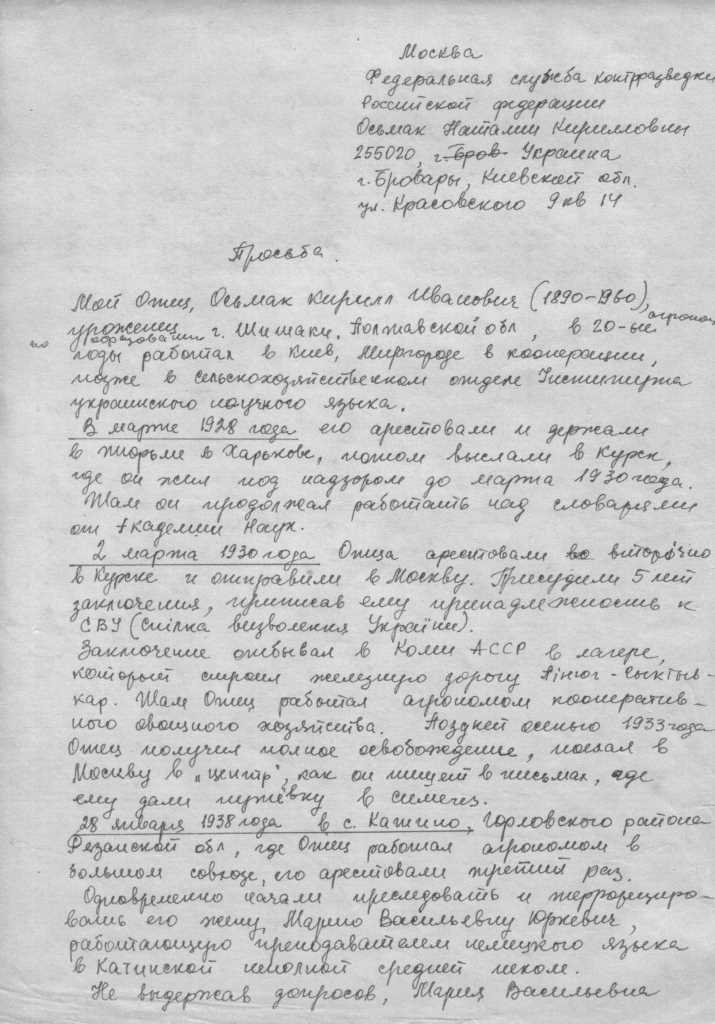 Москва
Федеральная служба контрразведки
Российской федерации
Осьмак Наталии Кирилловны
255020, г. Бров Украина
г. Бровары, Киевской обл.
ул. Красовского 9 кв 14
Просьба.
Мой Отец, Осьмак Кирилл Иванович (1890-1960),
уроженец г. Шишаки, Полтавской обл, агроном
по образованию в 20-ые
годы работал в Киев, Миргороде в кооперации,
позже в сельскохозяйственном отделе Iнститута
украинского научного языка.
В марте 1928 года его арестовали и держали
в тюрьме в Харькове, потом выслали в Курск,
где он жил под надзором до марта 1930 года.
Там он продолжал работать над словарями
от Академии Наук.
2 марта 1930 года Отца арестовали во вторично
в Курске и отправили в Москву. Присудили 5 лет
заключения, приписав ему принадлежность к
СВУ (Спілка визволення України).
Заключение отбывал в Коми АССР в лагере,
который строил железную дорогу Пінюг-Сыктыв-
кар. Там Отец работал агрономом кооператив-
ного овощного хозяйства. Поздней осенью 1933 года
Отец получил полное освобождение, поехал в
Москву в „центр", как он пишет в письмах, где
ему дали путёвку в
28 января 1938 года в с. Катино, Горловского района
Рязанской обл, где Отец работал агрономом в
большом совхозе, его арестовали третий раз.
Одновременно начали преследовать и терроризиро-
вать его жену, Марию Васильевну Юркевич,
работающую преподавателем немецкого языка
в Катинской неполной средней школе.
Не выдержав допросов, Мария Васильевна